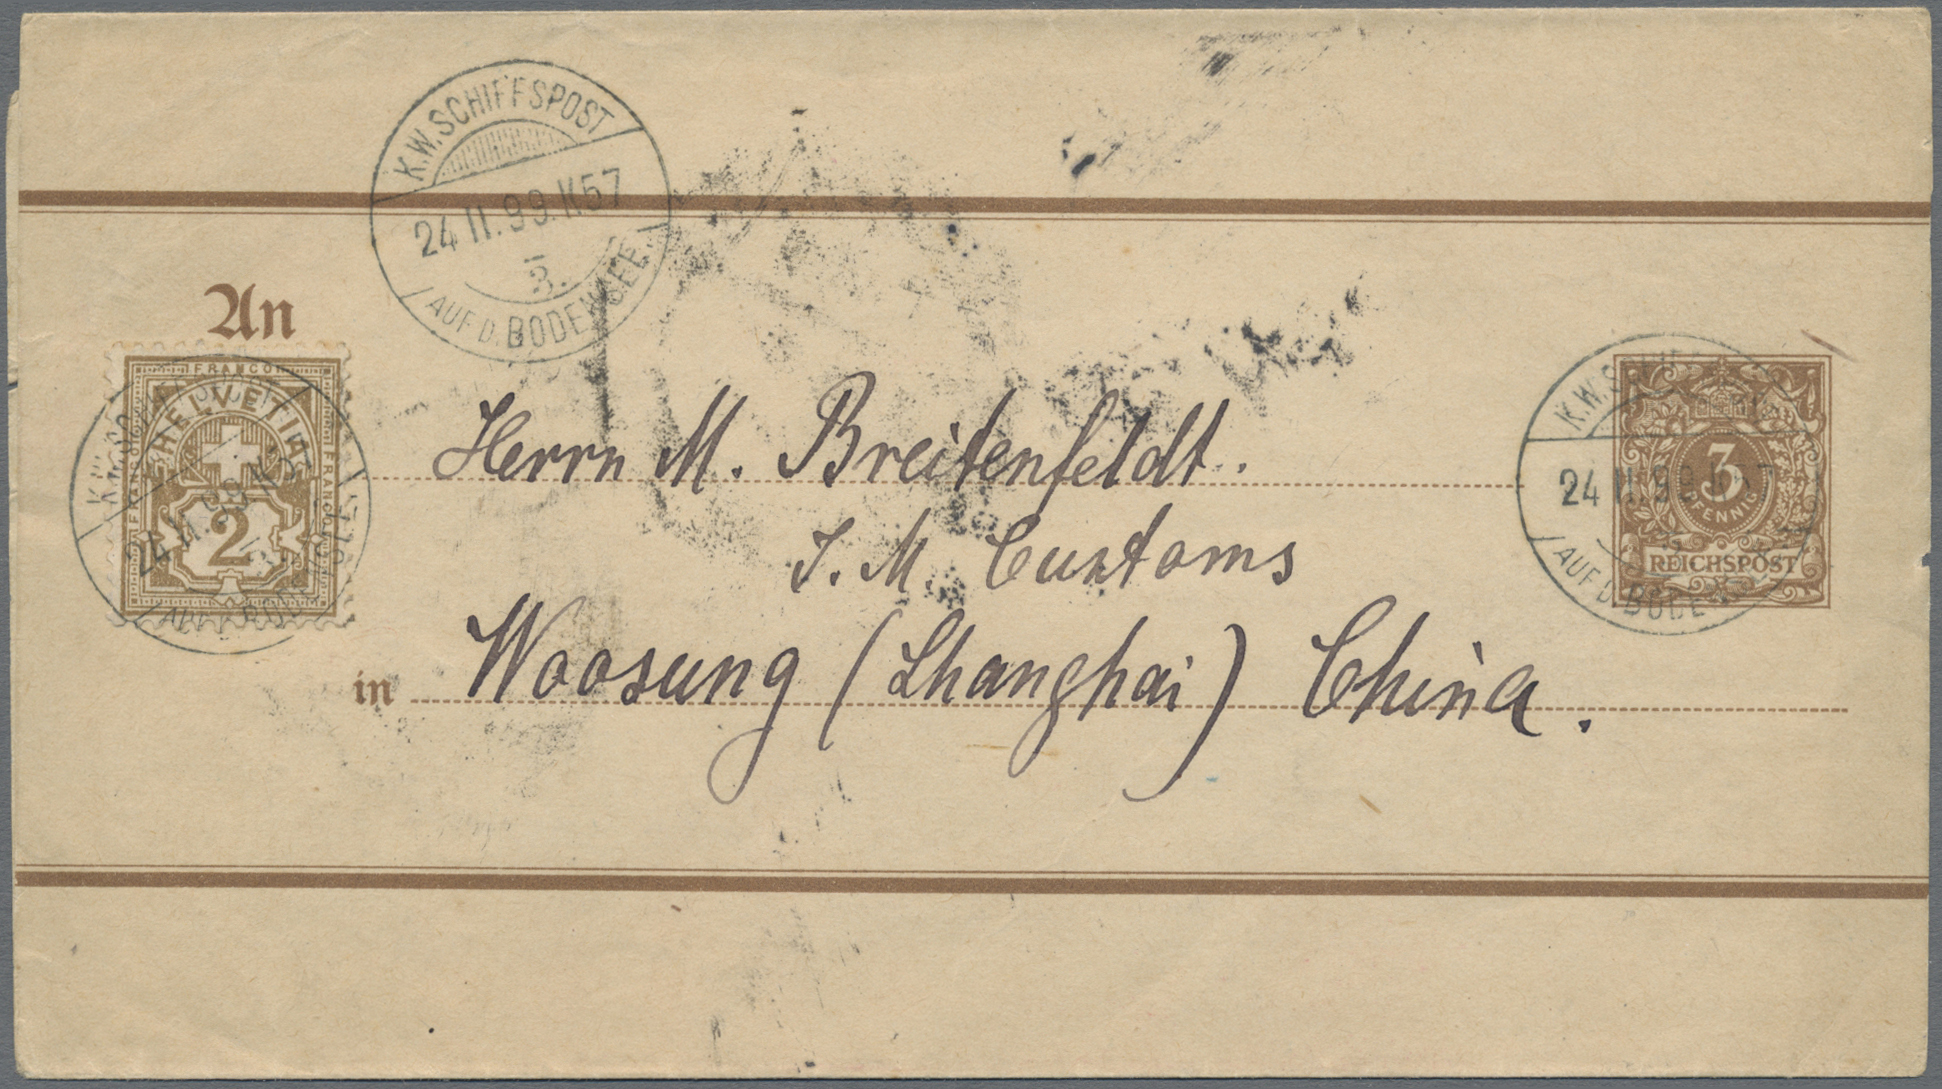 K.W. SCHIFFSPOST
24 II. 99. K57
3.
AUF D. BODENSEE
An
FRANCO
HELVETIA
FRANCO
FRANCO
2
24 II. 99
K.W.
24 II. 99
AUF D. BODE
3
PFENNIG
REICHSPOST
Herrn M. Breitenfeldt.
I. M. Customs
in Woosung (Shanghai) China.